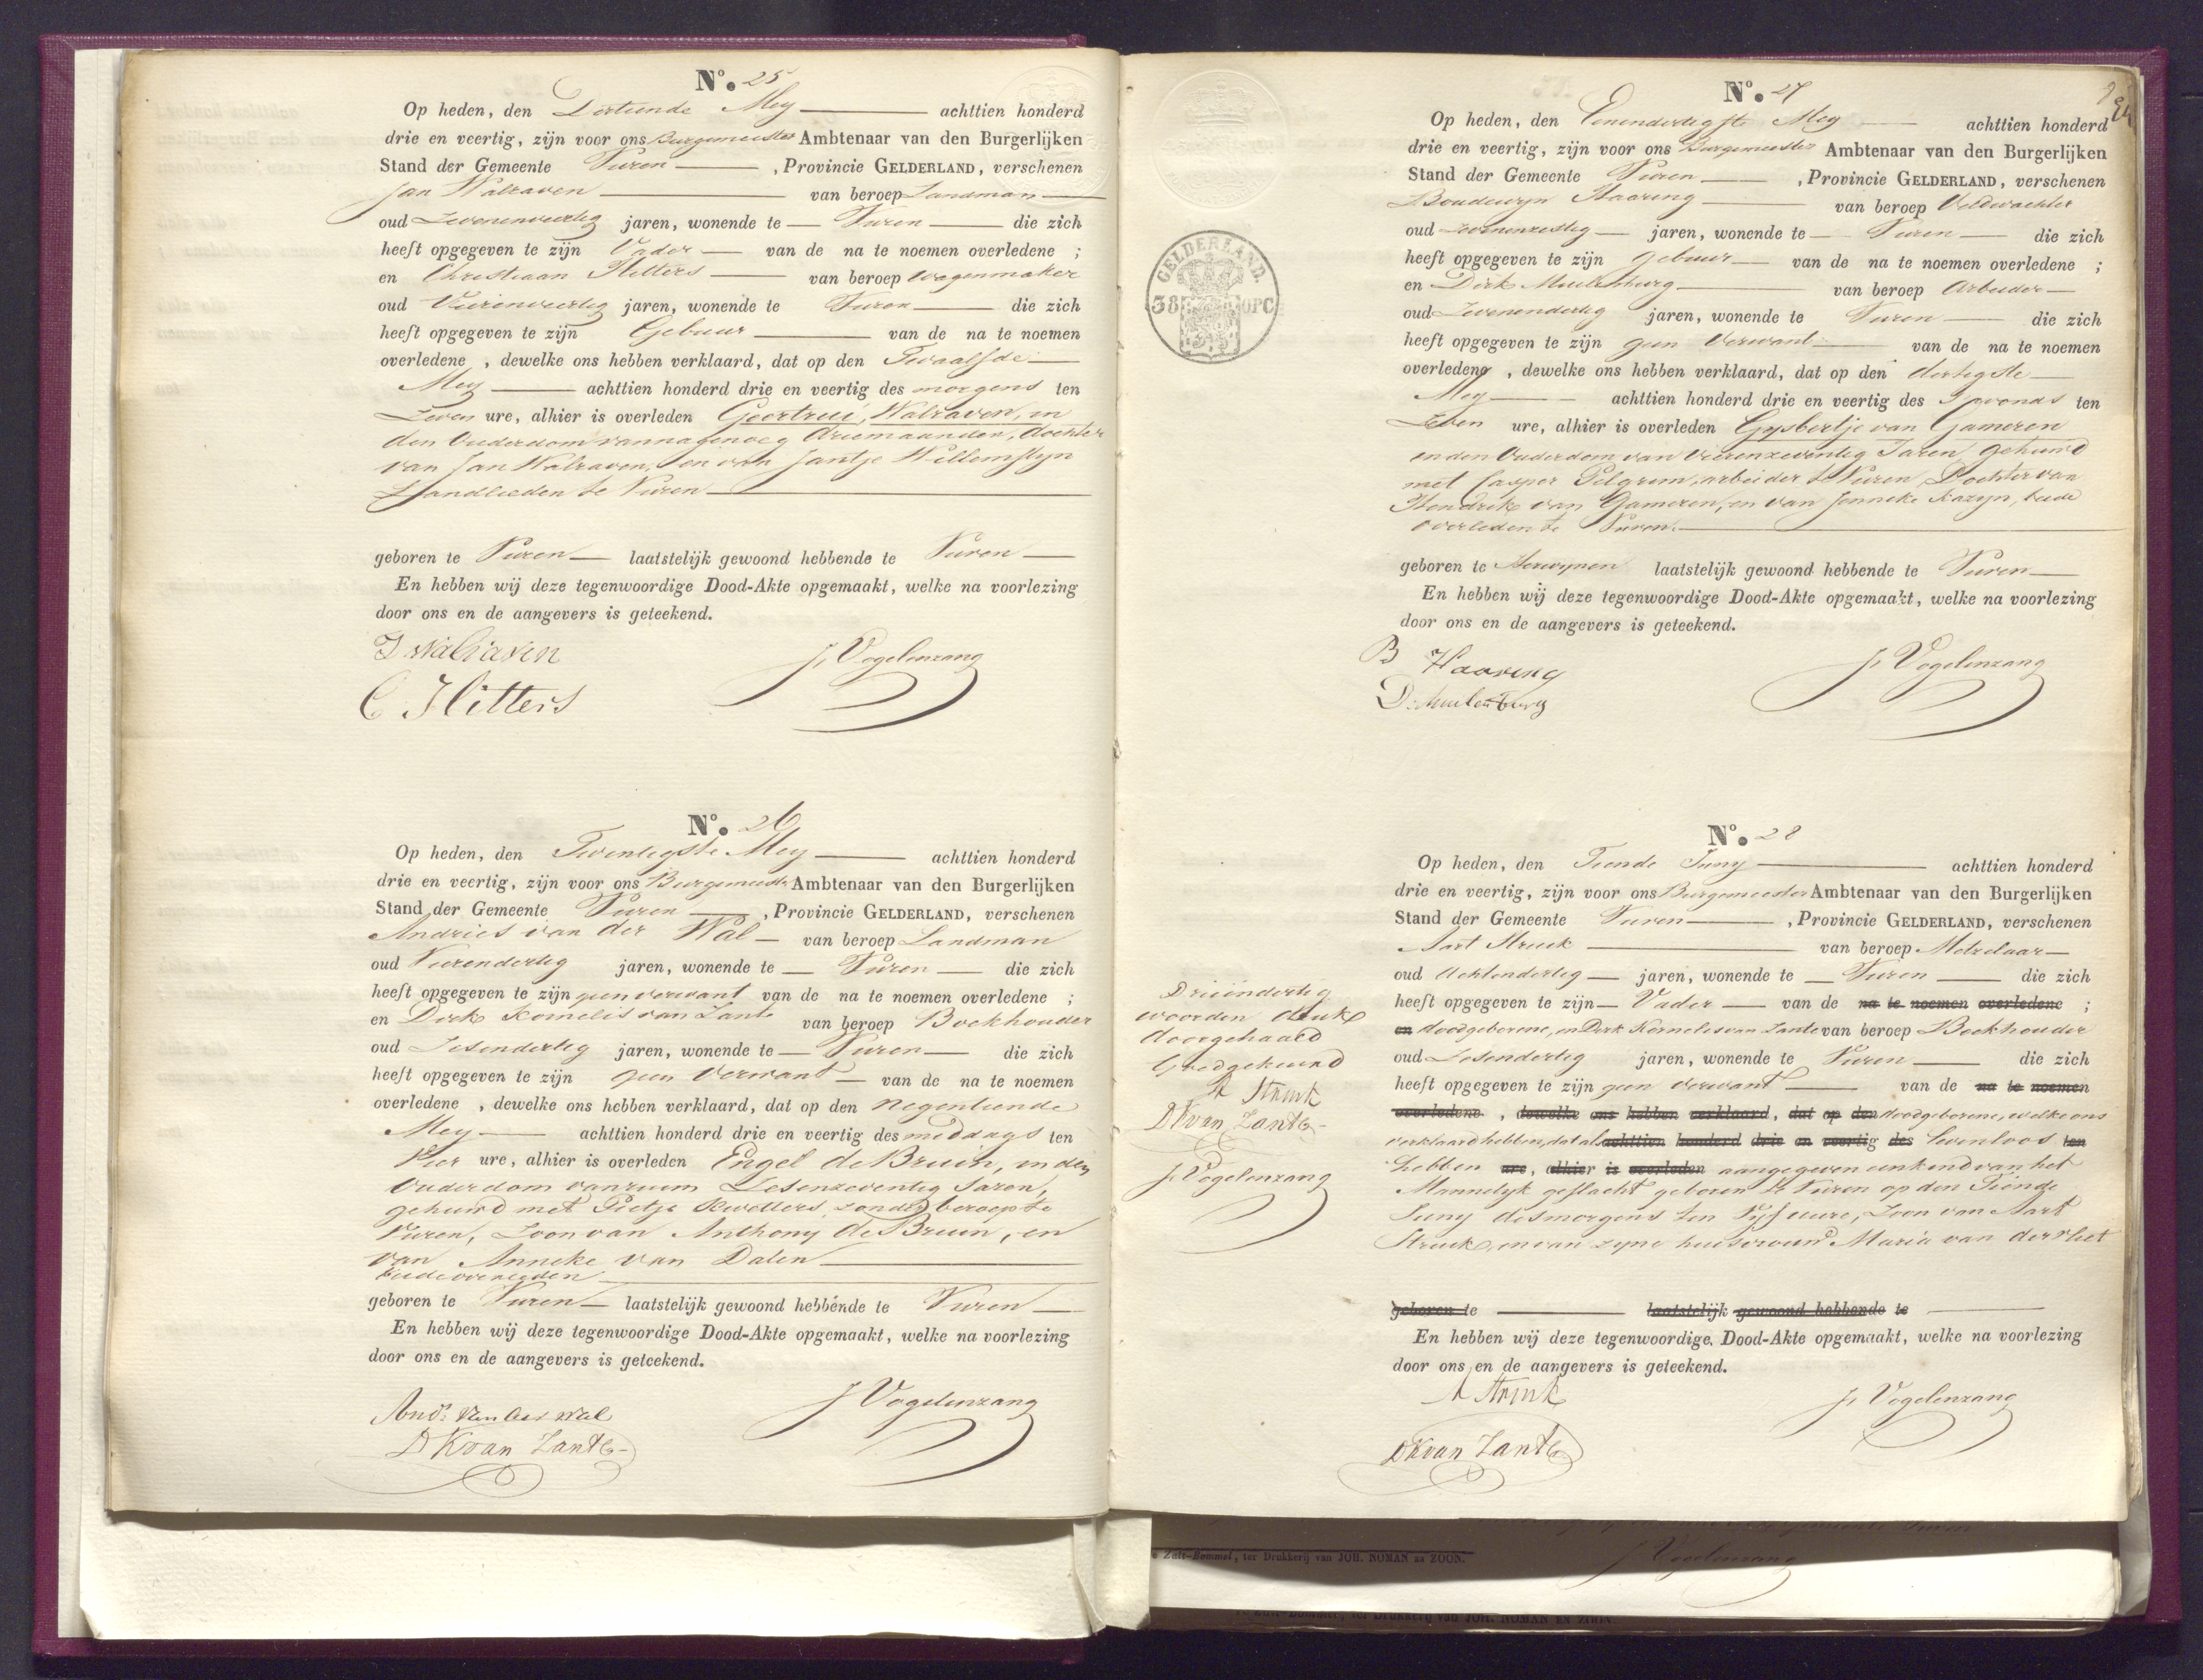 No. 25
Op heden, den Dertiende Mey achttien honderd
drie en veertig, zijn voor ons Burgemeester Ambtenaar van den Burgerlijken
Stand der Gemeente Vuren , Provincie GELDERLAND, verschenen
Jan Walraven van beroep Landman
oud Zevenenveertig jaren, wonende te Vuren die zich
heeft opgegeven te zijn Vader van de na te noemen overledene ;
en Christiaan Hitters van beroep Wagenmaker
oud Vierenveertig jaren, wonende te Vuren die zich
heeft opgegeven te zijn Gebuur van de na te noemen
overledene , dewelke ons hebben verklaard, dat op den Twaalfde
Mey achttien honderd drie en veertig des morgens ten
Zeven ure, alhier is overleden Geertrui Walraven, in
den Ouderdom van nagenoeg driemaanden, dochter
van Jan Walraven, en van Jantje Willemstyn
Landlieden te Vuren
geboren te Vuren laatstelijk gewoond hebbende te Vuren
En hebben wij deze tegenwoordige Dood-Akte opgemaakt, welke na voorlezing
door ons en de aangevers is geteekend.
J Walraven J. Vogelenzang
C Hitters
No. 26
Op heden, den Twentigste Mey achttien honderd
drie en veertig, zijn voor ons Burgemeester Ambtenaar van den Burgerlijken
Stand der Gemeente Vuren , Provincie GELDERLAND, verschenen
Andries van der Wal van beroep Landman
oud Vierendertig jaren, wonende te Vuren die zich
heeft opgegeven te zijn geen verwant van de na te noemen overledene ;
en Dirk Kornelis van Zante van beroep Boekhouder
oud Zesendertig jaren, wonende te Vuren die zich
heeft opgegeven te zijn geen Verwant van de na te noemen
overledene , dewelke ons hebben verklaard, dat op den Negentiende
Mey achttien honderd drie en veertig des middags ten
Vier ure, alhier is overleden Engel de Bruin, in den
Ouderdom van ruim Zesenzeventig Jaren,
gehuwd met Pietje , zonder beroep te
Vuren, Zoon van Anthony de Bruin, en
van Anneke van Dalen
beide overleden
geboren te Vuren laatstelijk gewoond hebbende te Vuren
En hebben wij deze tegenwoordige Dood-Akte opgemaakt, welke na voorlezing
door ons en de aangevers is geteekend.
Ands van der Wal J Vogelenzang
DKvan Zante
No. 27
Op heden, den Eenendertigste Mey achttien honderd
drie en veertig, zijn voor ons Burgemeester Ambtenaar van den Burgerlijken
Stand der Gemeente Vuren , Provincie GELDERLAND, verschenen
Boudewyn Haaring van beroep Veldwachter
oud Zevenenzestig jaren, wonende te Vuren die zich
heeft opgegeven te zijn gebuur van de na te noemen overledene ;
en Dirk Muilenburg van beroep Arbeider
oud Zevenendertig jaren, wonende te Vuren die zich
heeft opgegeven te zijn geen Verwant van de na te noemen
overledene , dewelke ons hebben verklaard, dat op den dertigste
Mey achttien honderd drie en veertig des s'avonds ten
Zeven ure, alhier is overleden Gysbertje van Gameren
in den Ouderdom van Vierenzeventig Jaren gehuwd
met Casper Pelgrim, arbeider te Vuren, Dochter van
Hendrik van Gameren, en van Jenneke Kazyn, beide
overleden te Vuren.
geboren te Herwynen laatstelijk gewoond hebbende te Vuren
En hebben wij deze tegenwoordige Dood-Akte opgemaakt, welke na voorlezing
door ons en de aangevers is geteekend.
B Haaring J. Vogelenzang
D: Muilenburg
GELDERLAND.
38 OPC
No. 28
Op heden, den Tiende Juny achttien honderd
drie en veertig, zijn voor ons Burgemeester Ambtenaar van den Burgerlijken
Stand der Gemeente Vuren , Provincie GELDERLAND, verschenen
Aart Struik van beroep Metzelaar
oud Achtendertig jaren, wonende te Vuren die zich
heeft opgegeven te zijn Vader van de na te noemen overledene ;
en doodgeborene, en Dirk Kornelis van Zante van beroep Boekhouder
oud Zesendertig jaren, wonende te Vuren die zich
heeft opgegeven te zijn geen verwant van de na te noemen
overledene , dewelke ons hebben verklaard, dat op den doodgeborene, welke ons
verklaard hebben, dat al achttien honderd drie en veertig des levenloos ten
hebben ure, alhier is overleden aangegeven een kind van het
Mannelyk geslacht geboren te Vuren op den Tiende
Juny des morgens ten Vyf uure, Zoon van Aart
Struik, en van zyne huisvrouw Maria van der Vliet
geboren te laatstelijk gewoond hebbende te
En hebben wij deze tegenwoordige Dood-Akte opgemaakt, welke na voorlezing
door ons en de aangevers is geteekend.
A Struik J. Vogelenzang
DKvan Zante
Drieëndertig
woorden druk
doorgehaald
Goedgekeurd
A Struik
DKvan Zante
J. Vogelenzang
Zalt-Bommel, ter Drukkerij van JOH. NOMAN en ZOON.
J Vogelenzang
Te Zalt-Bommel, ter Drukkerij van JOH. NOMAN EN ZOON.